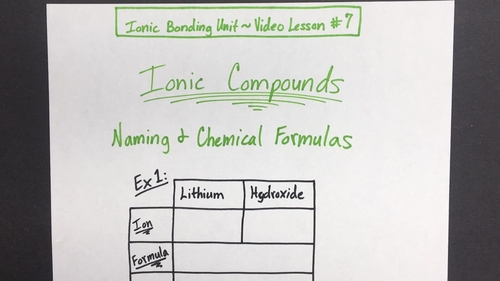 Ionic Bonding Unit ~ Video Lesson #7
Ionic Compounds
Naming & Chemical Formulas
Ex 1:
Lithium Hydroxide
Ion
Formula